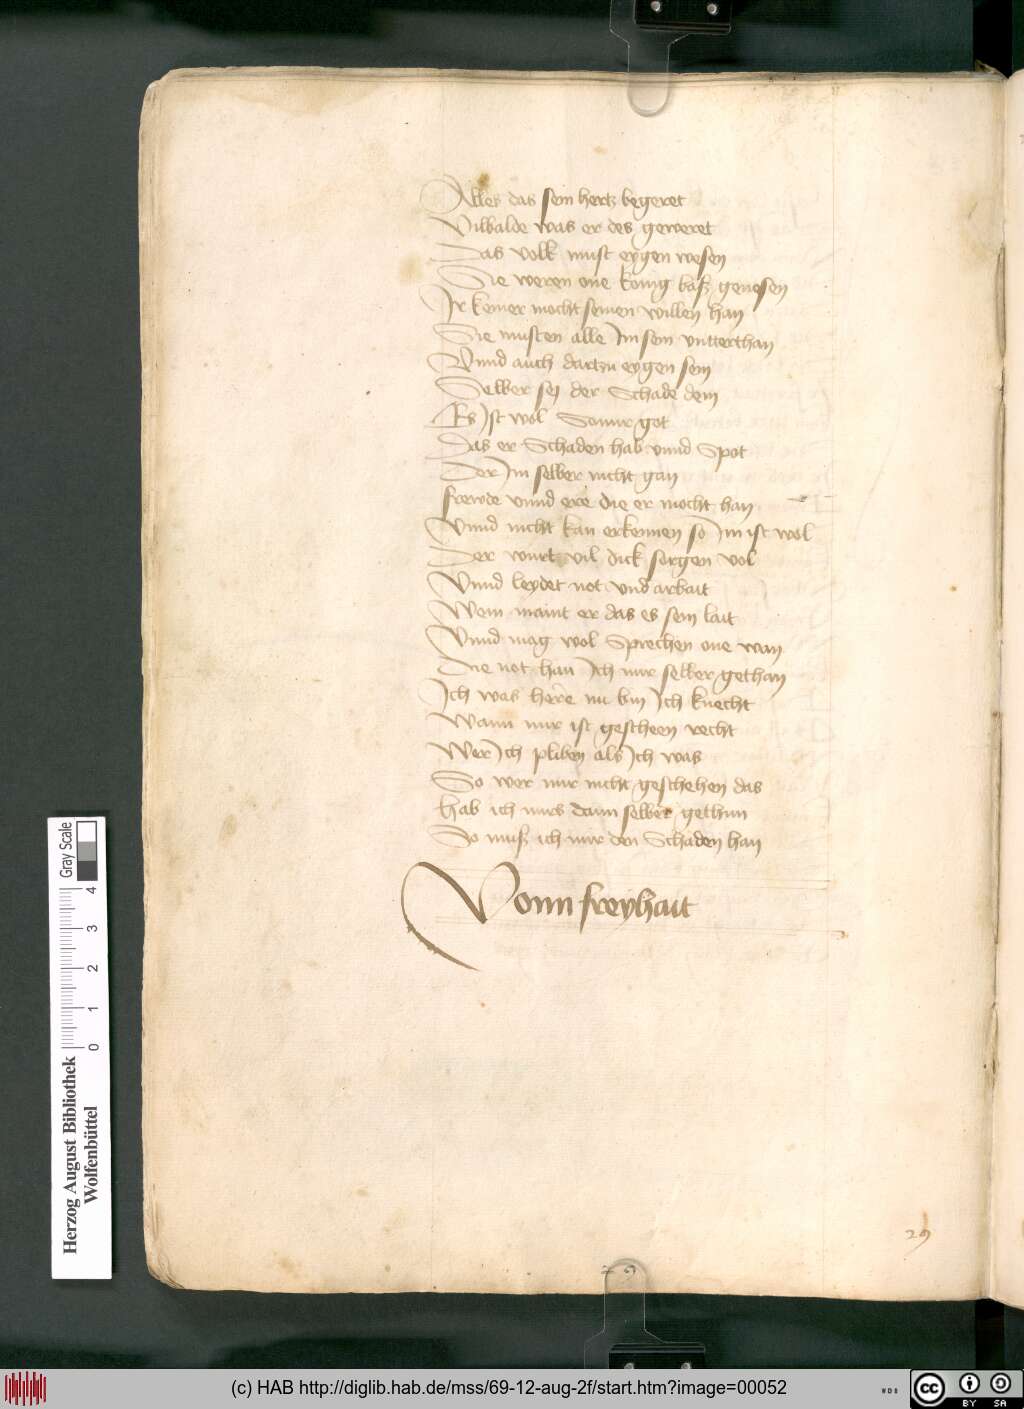 Alles das sein hertz begeret
Vilbalde was er des geweret
Das volk must eygen wesen
Sie weren one konig baß genesen
Ir keiner mocht seinen willen han
Sie musten alle Im sein vntterthan
Vnnd auch dartzu eygen sein
Selber sej der Schade dein
Es Ist wol Sonnr got
Das er Schaden hab vnnd Spot
Der Im selber nicht gan
frewde vnnd ere die er mocht han
Vnnd nicht kan erkennen so Im ist wol
Der wurt vil dick sorgen vol
Vnnd leydet not vnd arbait
Wem maint er das es sein lait
Vnnd mag wol Sprechen one wan
Die not han Ich mir selber gethan
Ich was here nu bin Ich knecht
Wann mir ist gescheen recht
Wer Ich pliben als Ich was
So wer mir nicht geschehen das
hab ich mirs dann selber gethan
So muß ich mir den Schaden han
Vonn freyhait
29
29
Herzog August Bibliothek
Wolfenbüttel
0 1 2 3 4
Gray Scale
(c) HAB http://diglib.hab.de/mss/69-12-aug-2f/start.htm?image=00052
WDB
cc
BY SA